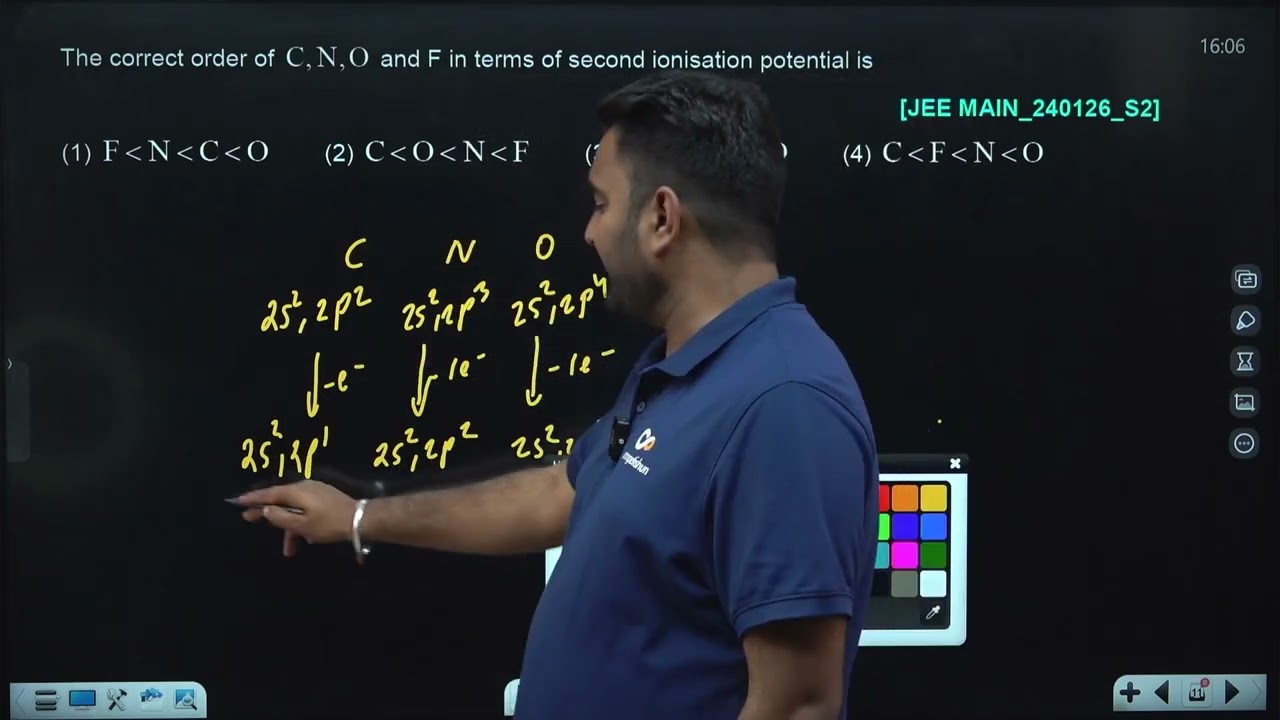 The correct order of C, N, O and F in terms of second ionisation potential is
16:06
[JEE MAIN_240126_S2]
(1) F < N < C < O (2) C < O < N < F (4) C < F < N < O
C N O
2s², 2p² 2s², 2p³ 2s², 2p⁴
-e⁻ -1e⁻ -1e⁻
2s², 2p¹ 2s², 2p² 2s²
11